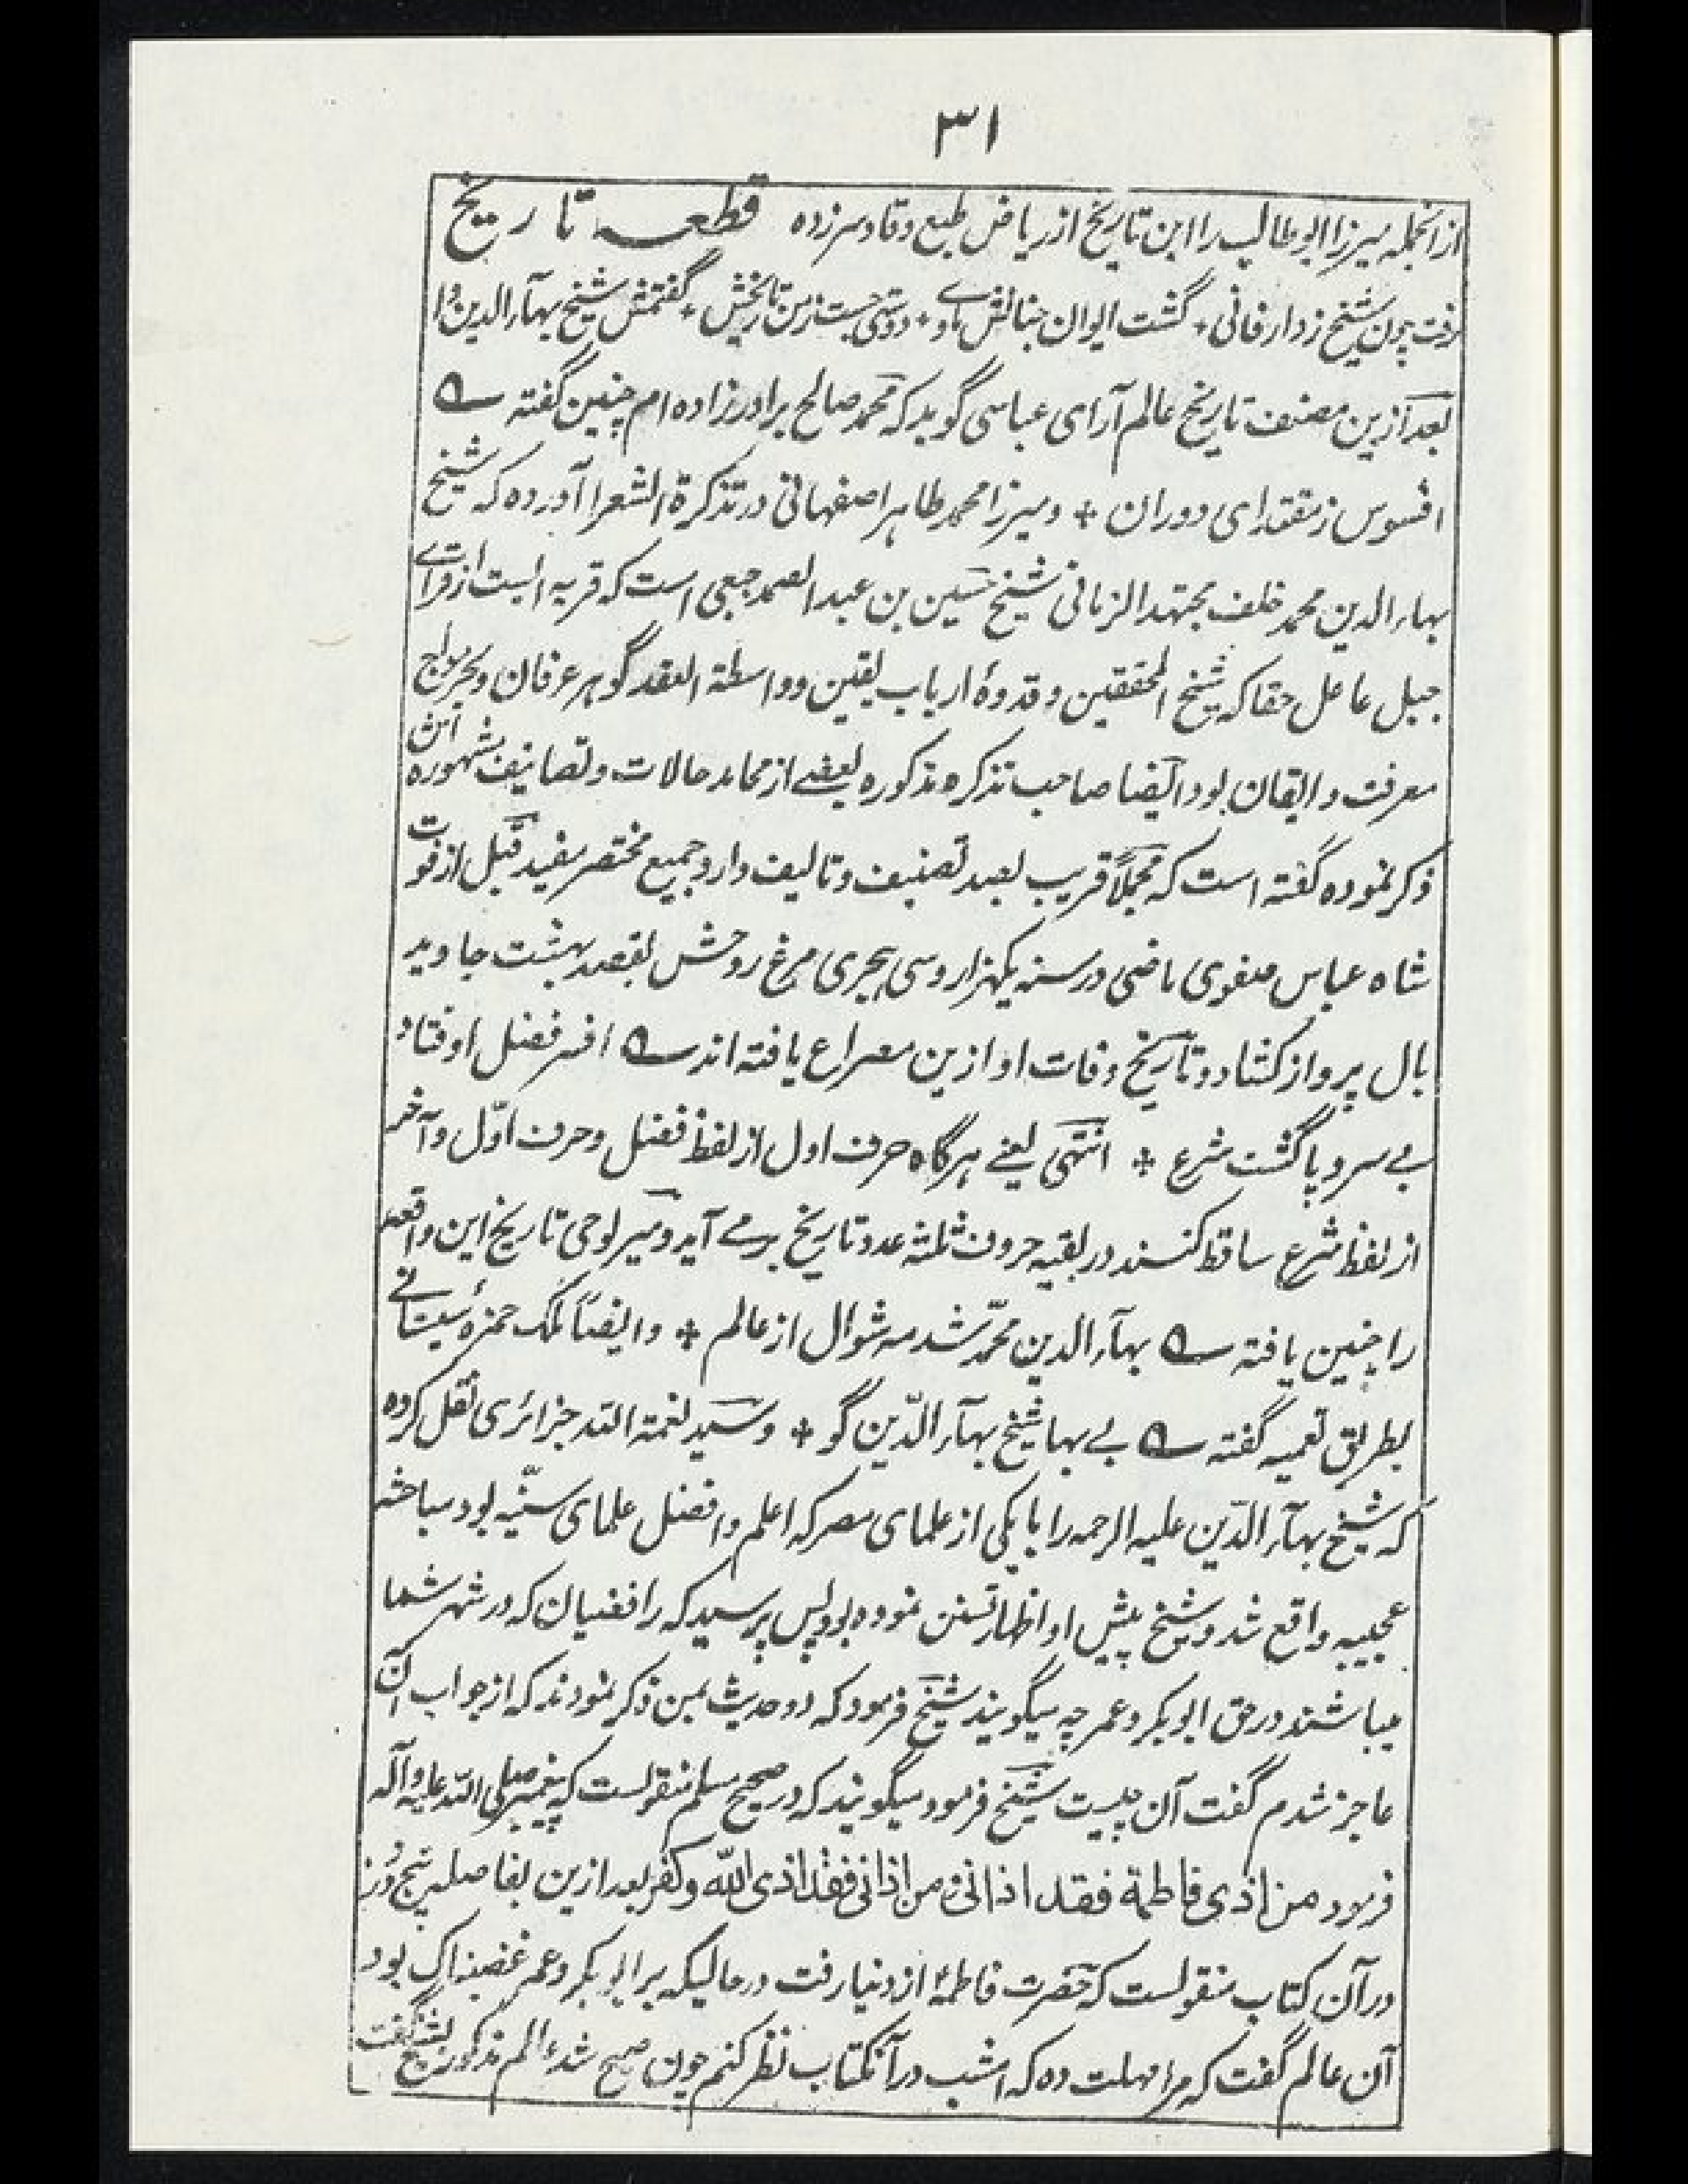 ۳۱
ازانجمله میرزا ابوطالب را این تاریخ از ریاض طبع وقاد سرزده قطعه تاریخ
رفت چون شیخ ز دار فانی + گشت ایوان جنانش ماوے + دوستی جست ز من تاریخش + گفتمش شیخ بهآء الدین وا
بعد ازین مصنف تاریخ عالم آرای عباسی گوید که محمد صالح برادرزاده ام چنین گفته
افسوس ز مقتدای دوران + ومیرزا محمد طاهر اصفهانی در تذکرة الشعرا آورده که شیخ
بهاء الدین محمد خلف مجتهد الزمانی شیخ حسین بن عبد الصمد جبعی است که قریه ایست از قرای
جبل عامل حقا که شیخ المحققین و قدوهٔ ارباب یقین و واسطة العقد گوهر عرفان و بحر مواج
معرفت و ایقان بود ایضا صاحب تذکره مذکوره بعضے از محامد حالات و تصانیف مشهوره اش
ذکر نموده گفته است که مجملاً قریب بصد تصنیف و تالیف دارد جمیع مختصر مفید قبل از فوت
شاه عباس صفوی ماضی در سنه یکهزار و سی هجری مرغ روحش بقصد بهشت جاوید
بال پرواز کشاد و تاریخ وفات او ازین مصراع یافته اند افسر فضل اوفتاد
بے سر و پا گشت شرع + انتهی یعنے هرگاه حرف اول از لفظ فضل و حرف اوّل و آخر
از لفظ شرع ساقط کنند در بقیه حروف ثلثه عدد تاریخ برمے آید و میر لوحی تاریخ این واقعه
را چنین یافته بهآء الدین محمّد شد مه شوال از عالم + و ایضاً ملک حمزهٔ سیستانے
بطریق تعمیه گفته بے بها شیخ بهآء الدّین گو + و سید نعمة الله جزائری نقل کرده
که شیخ بهآء الدّین علیه الرحمه را با یکی از علمای مصر که اعلم و افضل علمای سنّیه بود مباحثه
عجیبه واقع شد و شیخ پیش او اظهار تسنن نموده بود پس پرسید که رافضیان که در شهر شما
میباشند در حق ابوبکر و عمر چه میگویند شیخ فرمود که دو حدیث بمن ذکر نمودند که از جواب آن
عاجز شدم گفت آن چیست شیخ فرمود میگویند که در صحیح مسلم منقولست که پیغمبر صلی الله علیه و آله
فرمود من اذی فاطمة فقد اذانی و من اذانی فقد اذی الله و کفر بعد ازین بفاصله پنج ورق
در آن کتاب منقولست که حضرت فاطمهؑ از دنیا رفت در حالیکه بر ابوبکر و عمر غضبناک بود
آن عالم گفت که مرا مهلت ده که امشب در آنکتاب نظر کنم چون صبح شد عالم مذکور بشیخ گفت